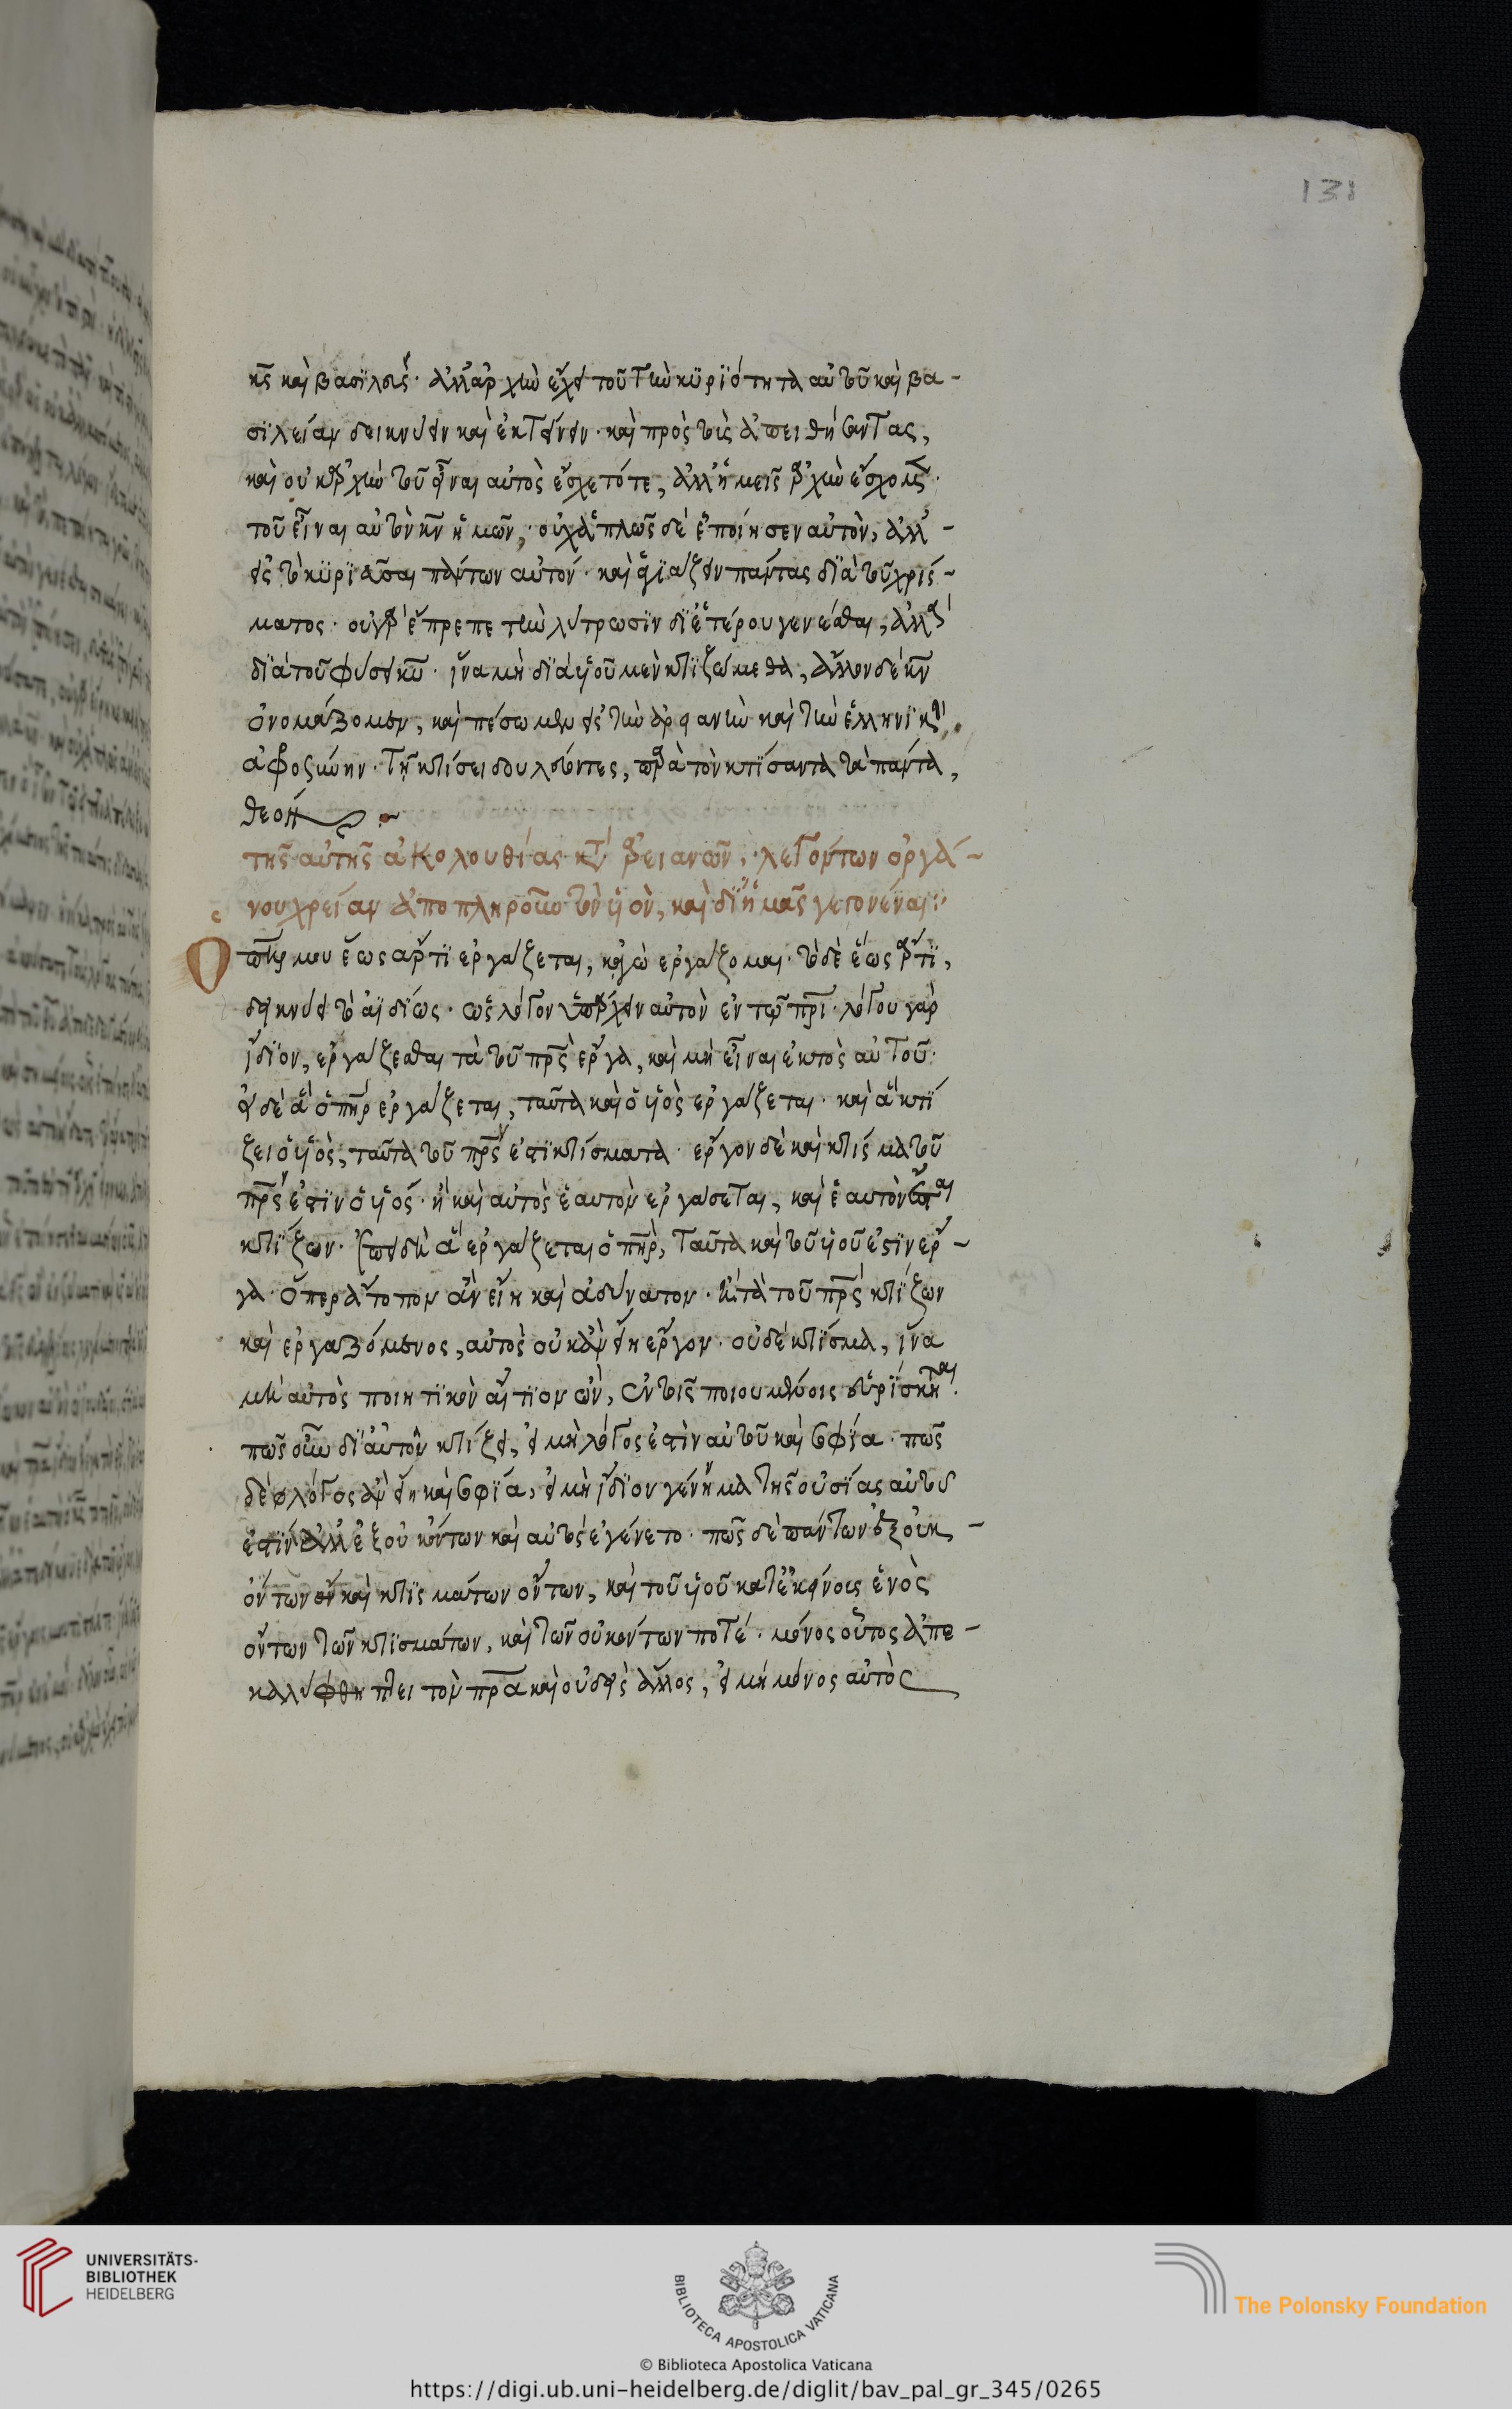 131
κς καὶ βασιλεύς· ἀλλ' ἀρχὴν ἔχει τοῦ τὴν κυριότητα αὐτοῦ καὶ βα-
σιλείαν δεικνύειν καὶ ἐκτείνειν· καὶ πρὸς τοὺς ἀπειθήσαντας,
καὶ οὐκ ἀρχὴν τοῦ εἶναι αὐτὸς ἔσχε τότε, ἀλλ' ἡμεῖς ἀρχὴν ἔσχομεν·
τοῦ εἶναι αὐτὸν κν ἡμῶν, οὐχ ἁπλῶς δὲ ἐποίησεν αὐτὸν, ἀλλ'-
εἰς τὸ κυριεῦσαι πάντων αὐτόν· καὶ ἁγιάζειν πάντας διὰ τοῦ χρίσ-
ματος· οὐ γὰρ ἔπρεπε τὴν λύτρωσιν δι' ἑτέρου γενέσθαι, ἀλλὰ
διὰ τοῦ φύσει κυ· ἵνα μὴ διὰ υἱοῦ μὲν κτιζώμεθα, ἄλλον δὲ κν
ὀνομάζομεν, καὶ πέσωμεν εἰς τὴν ἀρειανὴν καὶ τὴν ἑλληνικὴν
ἀφροσύνην· τῇ κτίσει δουλεύοντες, παρὰ τὸν κτίσαντα τὰ πάντα,
θεόν
τῆς αὐτῆς ἀκολουθίας κατὰ ἀρειανῶν, λεγόντων ὀργά-
νου χρείαν ἀποπληροῦν τὸν υἱὸν, καὶ δι' ἡμᾶς γεγονέναι:
Ὁ πηρ μου ἕως ἄρτι ἐργάζεται, κἀγὼ ἐργάζομαι· τὸ δὲ ἕως ἄρτι,
δείκνυσι τὸ ἀϊδίως· ὡς λόγον ὑπάρχειν αὐτὸν ἐν τῷ πρι· λόγου γὰρ
ἴδιον, ἐργάζεσθαι τὰ τοῦ πρς ἔργα, καὶ μὴ εἶναι ἐκτὸς αὐτοῦ·
εἰ δὲ ἃ ὁ πηρ ἐργάζεται, ταῦτα καὶ ὁ υἱὸς ἐργάζεται· καὶ ἃ κτί
ζει ὁ υἱὸς, ταῦτα τοῦ πρς ἐστὶ κτίσματα· ἔργον δὲ καὶ κτίσμα τοῦ
πρς ἐστὶν ὁ υἱός· ἢ καὶ αὐτὸς ἑαυτὸν ἐργάσεται, καὶ ἑαυτὸν ἔσται
κτίζων· ἐπειδὴ ἃ ἐργάζεται ὁ πηρ, ταῦτα καὶ τοῦ υἱοῦ ἐστὶν ἔρ-
γα· ὅπερ ἄτοπον ἂν εἴη καὶ ἀδύνατον· τὰ τοῦ πρς κτίζων
καὶ ἐργαζόμενος, αὐτὸς οὐκ ἂν εἴη ἔργον· οὐδὲ κτίσμα, ἵνα
μὴ αὐτὸς ποιητικὸν αἴτιον ὢν, ἐν τοῖς ποιουμένοις εὑρίσκηται·
πῶς οὖν δι' αὐτὸν κτίζει, εἰ μὴ λόγος ἐστὶν αὐτοῦ καὶ σοφία· πῶς
δὲ ὁ λόγος ἂν εἴη καὶ σοφία, εἰ μὴ ἴδιον γέννημα τῆς οὐσίας αὐτοῦ
ἐστίν ἀλλ' ἐξ οὐκ ὄντων καὶ αὐτὸς ἐγένετο· πῶς δὲ πάντων ἐξ οὐκ-
ὄντων ὄν καὶ κτισμάτων ὄντων, καὶ τοῦ υἱοῦ κατ' ἐκείνους ἑνὸς
ὄντων τῶν κτισμάτων, καὶ τῶν οὐκ ὄντων ποτέ· μόνος οὗτος ἀπε-
καλύφθη πλει τὸν πρα καὶ οὐδεὶς ἄλλος, εἰ μὴ μόνος αὐτὸς
UNIVERSITÄTS-
BIBLIOTHEK
HEIDELBERG
BIBLIOTECA APOSTOLICA VATICANA
© Biblioteca Apostolica Vaticana
The Polonsky Foundation
https://digi.ub.uni-heidelberg.de/diglit/bav_pal_gr_345/0265